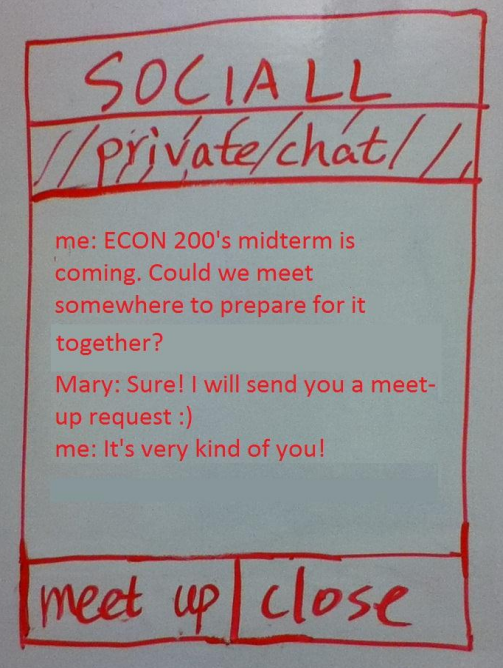 SOCIALL
//private/chat//
me: ECON 200's midterm is
coming. Could we meet
somewhere to prepare for it
together?
Mary: Sure! I will send you a meet-
up request :)
me: It's very kind of you!
meet up
close